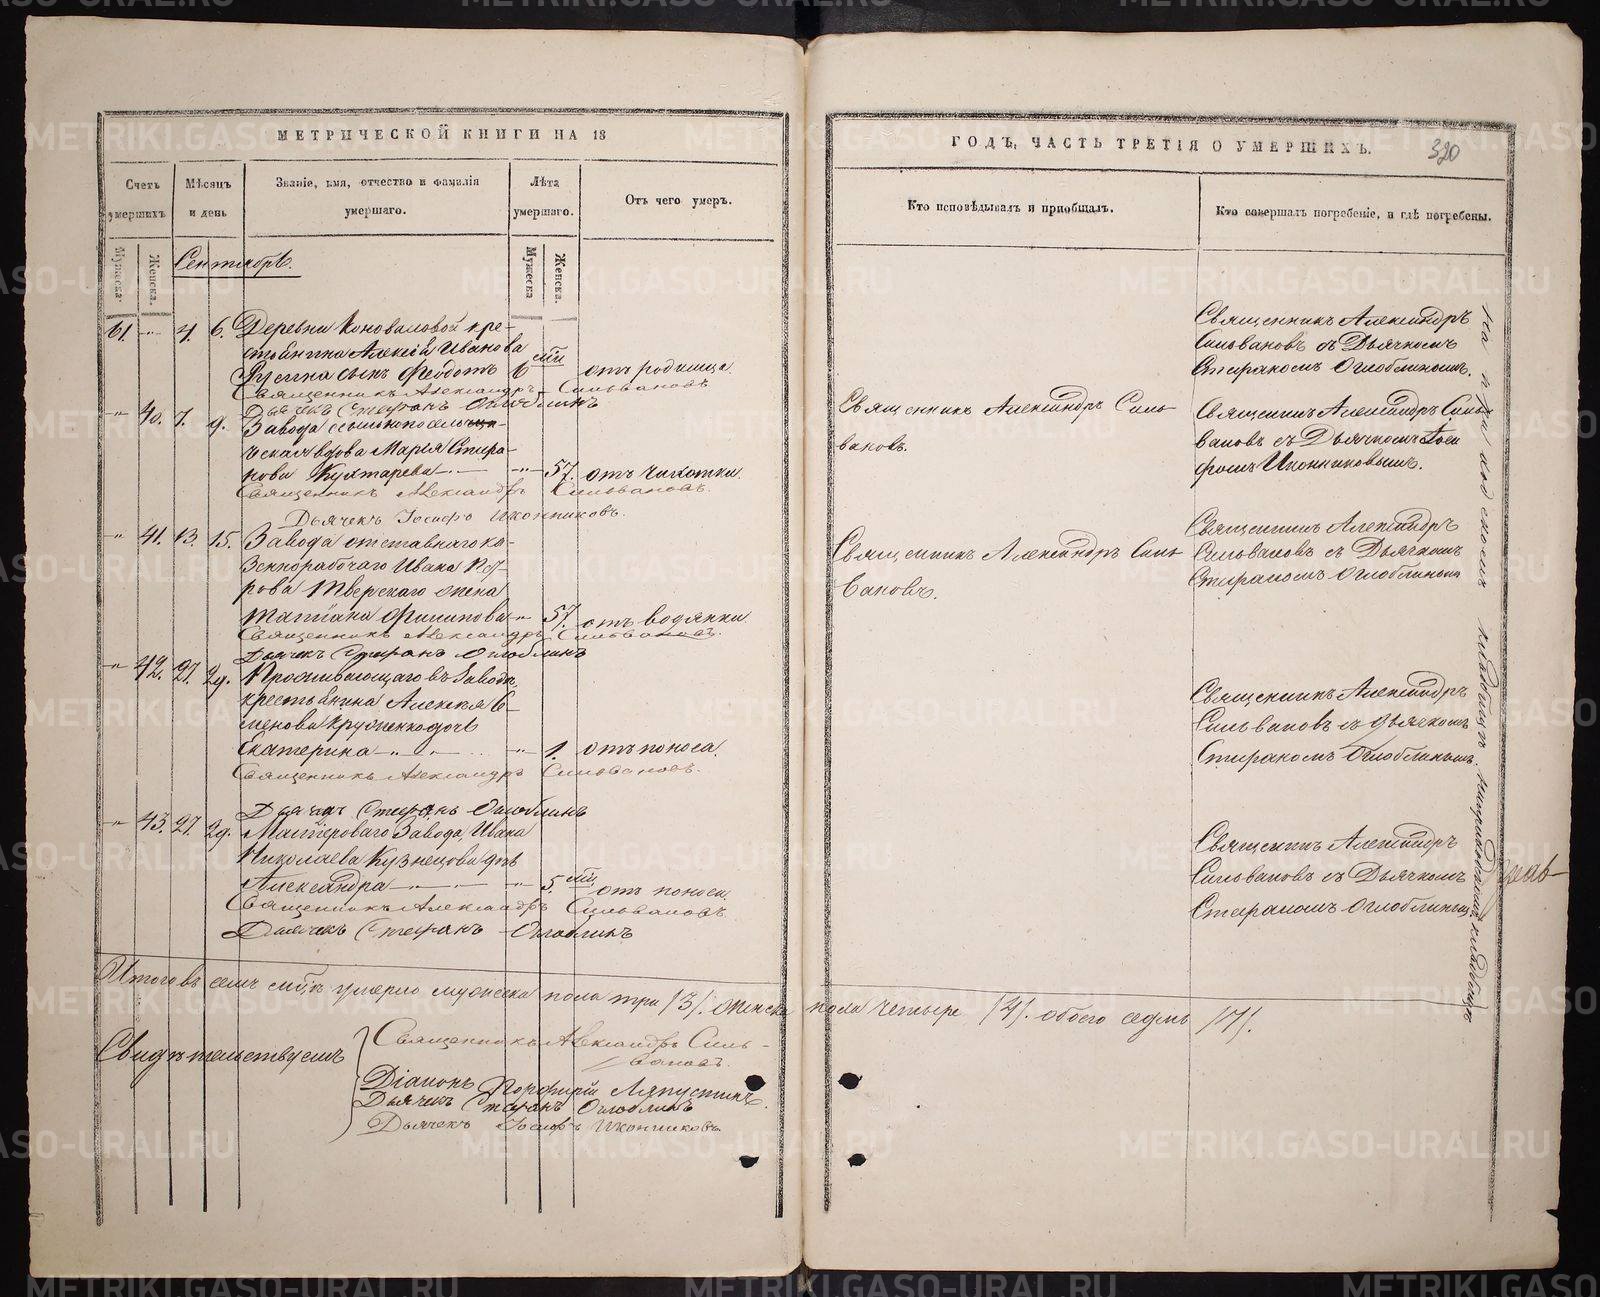 МЕТРИЧЕСКОЙ КНИГИ НА 18
Счетъ умершихъ
Мѣсяцъ и день
Званіе, имя, отчество и фамилія умершаго.
Лѣта умершаго.
Отъ чего умеръ.
Мужеска.
Женска.
Мужеска
Женска.
Сентябрь.
61. -"- 4. 6. Деревни Коноваловой кре-
стьянина Алексѣя Иванова
сынъ Феодотъ 6 отъ родимца.
Священникъ Александръ Сильвановъ
Дьячекъ Стефанъ Оглоблинъ
" 40. 7. 9. Завода
ческая вдова Марья Стефа-
нова Кухтарева -"- 57. отъ чахотки.
Священникъ Александръ Сильвановъ.
Дьячекъ Іосифъ Иконниковъ.
-"- 41. 13. 15. Завода отставнаго ка-
зеннорабочаго Ивана Пет-
рова Тверскаго жена
Татіана Филипова -"- 57. отъ водянки
Священникъ Александръ Сильвановъ.
Дьячекъ Стефанъ Оглоблинъ
-"- 42. 27. 29. Проживающаго въ Заводѣ
крестьянина Алексѣя Се-
менова дочь
Екатерина -"- -"- 1. отъ поноса.
Священникъ Александръ Сильвановъ.
Дьячекъ Стефанъ Оглоблинъ
-"- 43. 27. 29. Мастероваго Завода, Ивана
Николаева Кузнецова дочь
Александра -"- -"- 5. отъ поноса.
Священникъ Александръ Сильвановъ
Дьячекъ Стефанъ Оглоблинъ
Итого въ семъ м-цѣ умерло мужеска пола три /3/. женска пола четыре /4/. обоего седмь /7/.
Свидѣтельствуемъ
Священникъ Александръ Силь-
вановъ.
Діаконъ Порфирій Ляпустинъ.
Дьячекъ Стефанъ Оглоблинъ
Дьячекъ Іосифъ Иконниковъ
ГОДЪ, ЧАСТЬ ТРЕТІЯ О УМЕРШИХЪ.
320
Кто исповѣдывалъ и пріобщалъ.
Кто совершалъ погребеніе, и гдѣ погребены.
Священникъ Александръ
Сильвановъ съ Дьячкомъ
Стефаномъ Оглоблинымъ.
Священникъ Александръ Силь-
вановъ.
Священникъ Александръ Силь-
вановъ съ Дьячкомъ Іоси
фомъ Иконниковымъ.
Священникъ Александръ Силь-
вановъ.
Священникъ Александръ
Сильвановъ съ Дьячкомъ
Стефаномъ Оглоблинымъ
Священникъ Александръ
Сильвановъ съ Дьячкомъ
Стефаномъ Оглоблинымъ.
Священникъ Александръ
Сильвановъ съ Дьячкомъ
Стефаномъ Оглоблинымъ
на приходскомъ кладбищѣ
METRIKI.GASO-URAL.RU